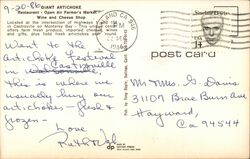 9-20-86
GIANT ARTICHOKE
Restaurant - Open Air Farmer's Market
Wine and Cheese Shop
Located at the intersection of Highways
in Castroville on Monterey Bay - This unique center
offers farm fresh produce, imported cheeses, wines
and gifts, plus fried fresh artichokes
Went to the
Artichoke Festival
in Castroville
this is where we
usually buy our
artichokes - fresh &
frozen -
Love
Ruth
post card
Mr + Mrs. G. Davis
31107 Brae Burn Ave
Hayward,
Ca 94544
dp